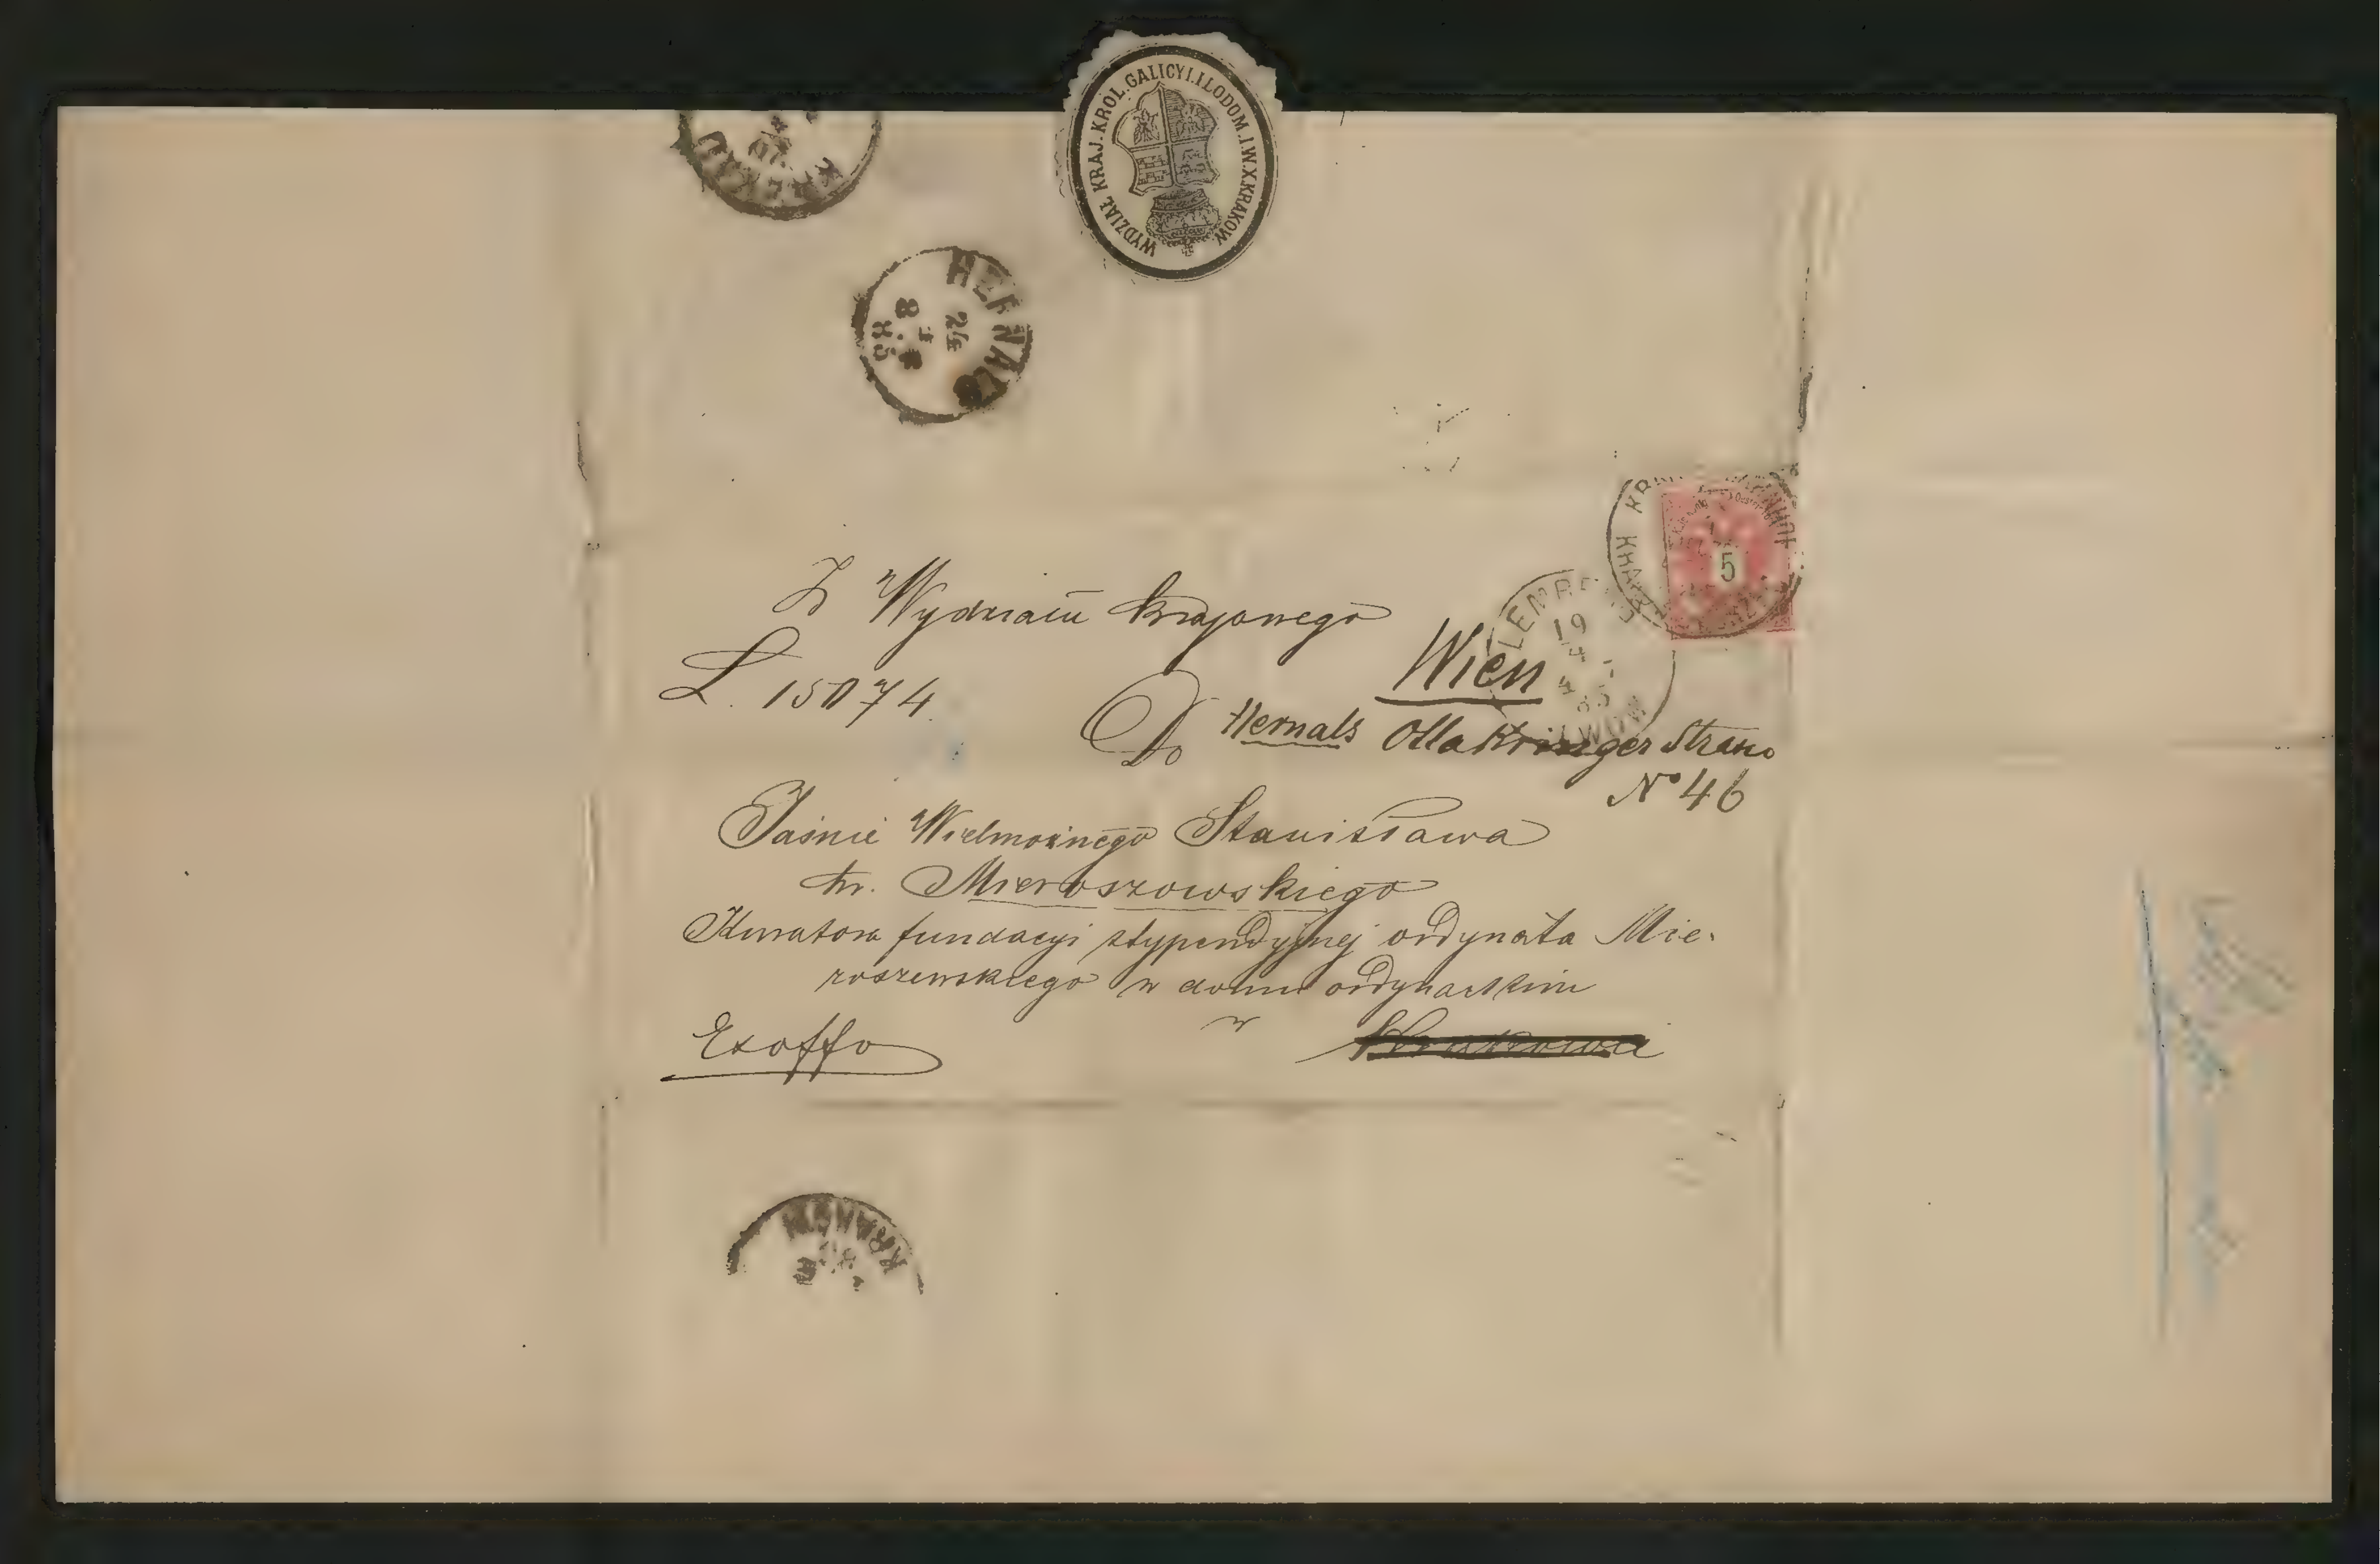 WYDZIAŁ KRAJ. KROL. GALICYI. I LODOM. I. W. X. KRAKOW.
HERNALS
24
8
85
5
LEMBERG
19
4
85
LWÓW
Z Wydziału krajowego
L. 15074.
Wien
Do Hernals Ottakringer Strasse
No 46
Jaśnie Wielmożnego Stanisława
hr. Mieroszowskiego
Kuratora fundacyi stypendyjnej ordynata Mie-
roszewskiego w domu ordynackim
w Krakowie
Exoffo
KRAKAU
KRAKÓW